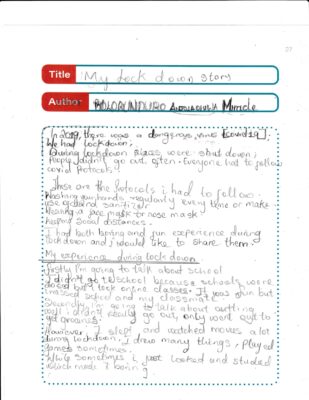 27
Title My Lock down story
Author BOLORUNDURO Miracle
In 2019, there was a dangerous virus [Covid 19];
We had lockdown;
During lockdown places were shut down;
People didn't go out often. Everyone had to follow
covid Protocols.
These are the Protocols i had to follow.
Washing our hands regularly every time or make
use of hand sanitizer
Wearing a face mask or nose mask
Respect Social distances.
I had both boring and fun experience during
lockdown and i would like to share them.
My experience during lock down
Firstly I'm going to talk about school
I didn't go to school because schools were
closed but I took online classes. It was fun but
I missed school and my classmate.
Secondly, I'm going to talk about outing
well i didn't really go out, only went out to
get groceries.
However, I slept and watched movies a lot
during lockdown. I drew many things, Played
games sometimes.
While sometimes i just looked and studied
which made it boring